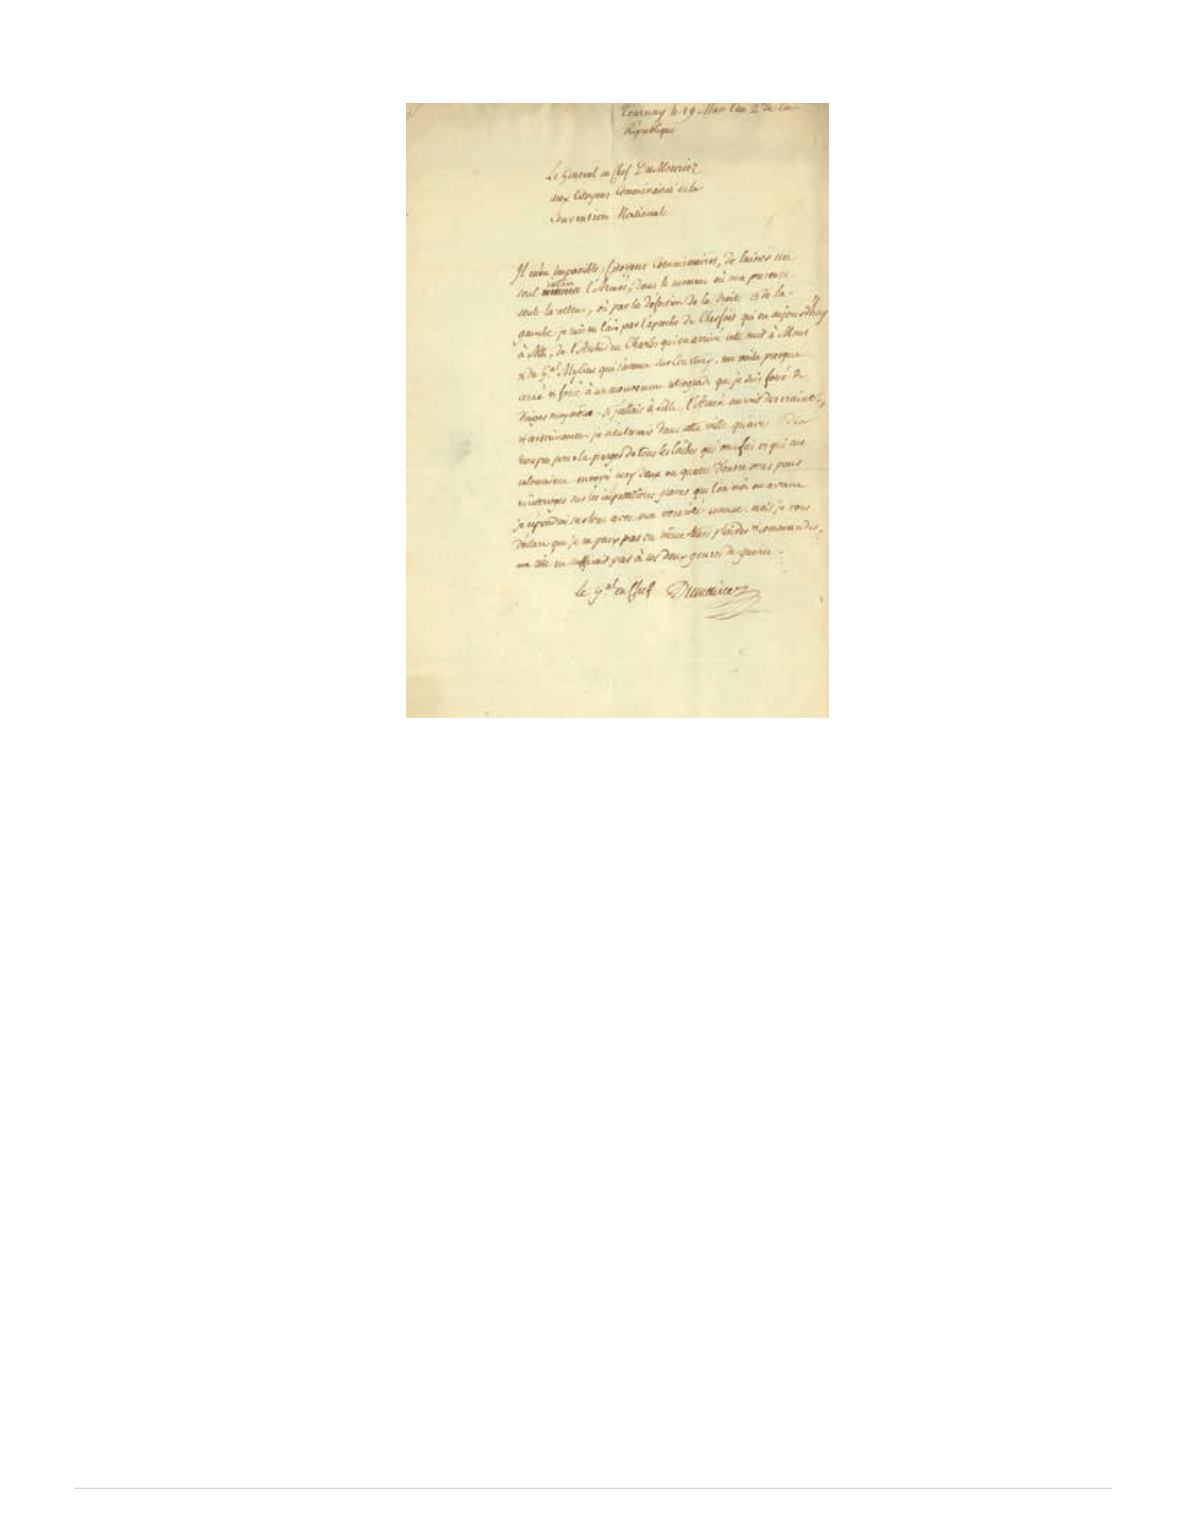 Tournay le 29 Mars l'an 2e de la
République
Le Général en Chef DuMouriez
aux Citoyens Commissaires de la
Convention Nationale
Il m'est impossible, Citoyens Commissaires, de laisser un
seul l'Armée, dans le moment où ma presence
seule la retient, où par la défection de la droite et de la
gauche je suis en l'air par l'aproche de Clerfait qui est aujourd'huy
à Ath, de l'Archiduc Charles qui est arrivé cette nuit à Mons
et du Gal Mylius qui s'avance sur Courtray. me voila presque
cerné et forcé à un mouvement retrograde que je suis forcé de
diriger moy même. Si j'allais à Lille, l'Armée aurait des craintes,
et certainement je n'entrerais dans cette ville qu'avec des
troupes pour la purger de tous les lâches qui ont fui et qui me
calomnient. envoyés moy deux ou quatre d'entre vous pour
m'interroger sur les imputations graves que l'on met en avant
je répondrai sur tout avec ma veracité connue. mais je vous
déclare que je ne peux pas en même tems plaider et commander.
ma tête ne suffirait pas à ces deux genres de guerre.
Le Gal en Chef Dumouriez